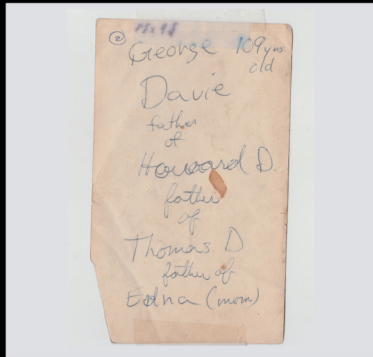 ② George 109 yrs
old
Davie
father
of
Howard D.
father
of
Thomas D
father of
Edna (mom)